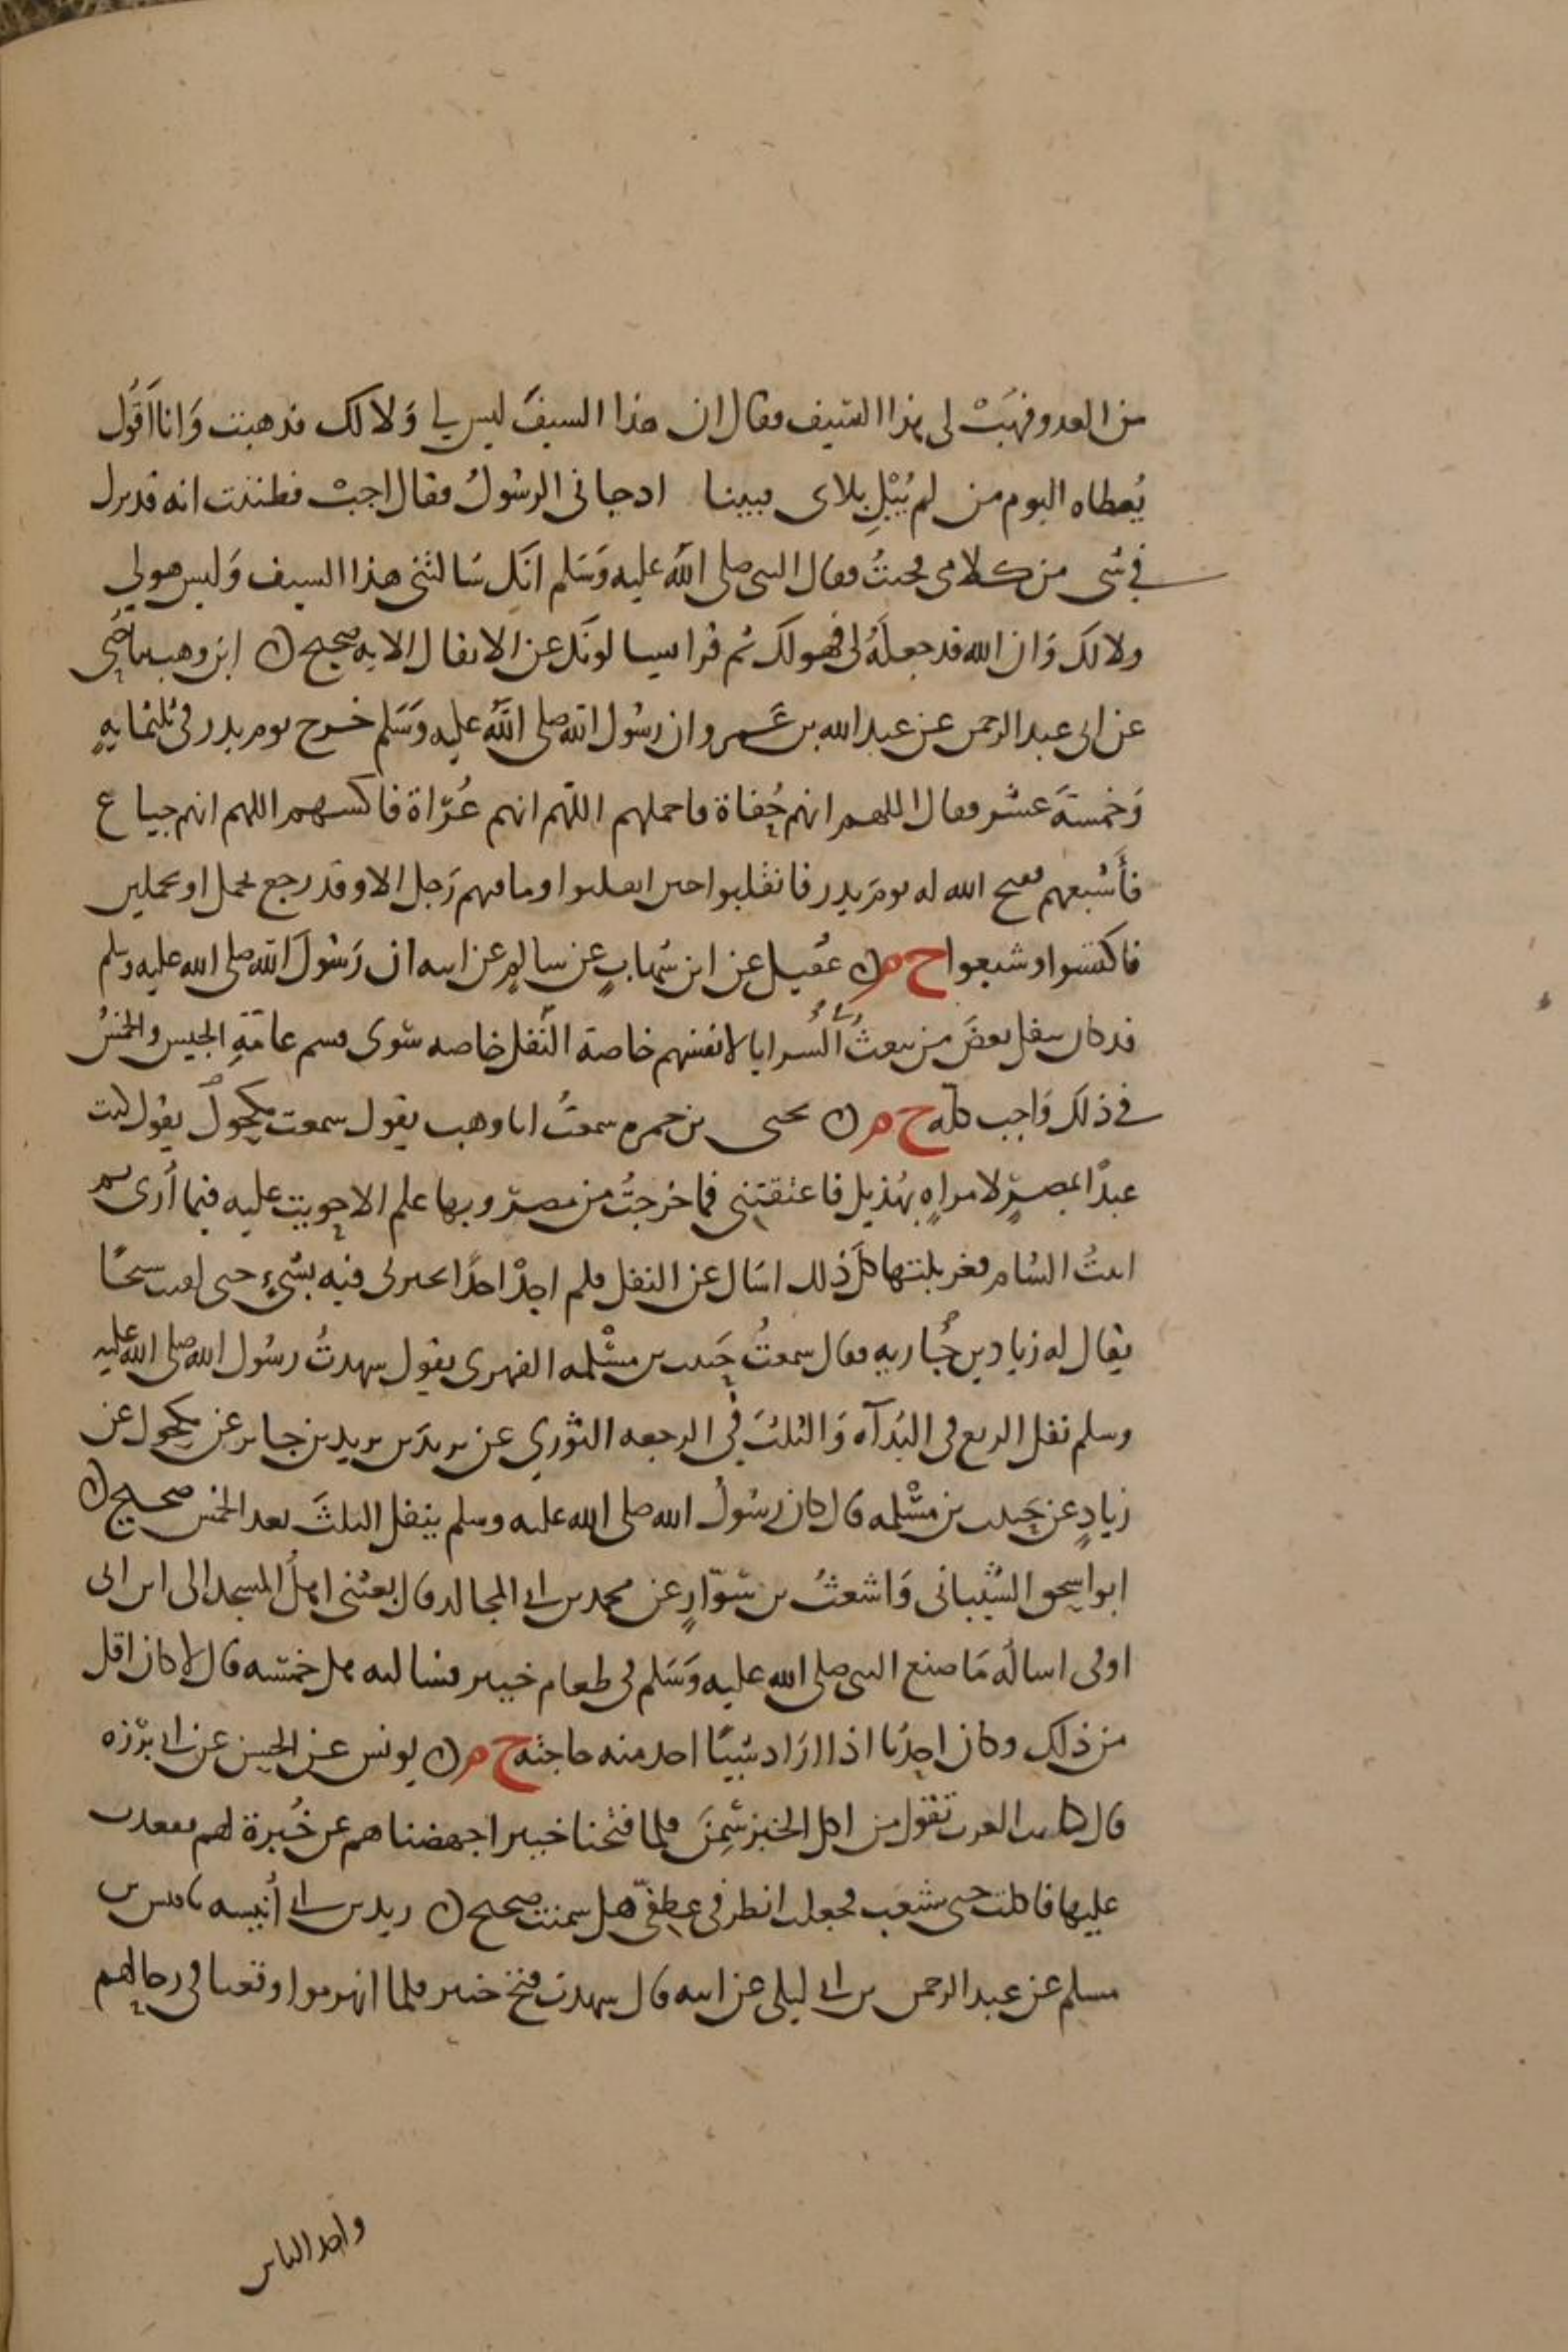 من العدو فهبت لى هذا السيف فقال ان هذا السيف ليس لي وَلا لك فذهبت وَانا اَقُول
يُعطاه اليوم من لم يُبْلِ بلاى فبينا اد جانى الرسُولُ فقال اجبْ فظننت انه قد نزل
في شى من كلامى فجئتُ فقال النبى صلى الله عليه وَسَلم انك سَالتنى هذا السيف وَليس هو لى
ولا لك وَان الله قد جعلَهُ لى فهو لك ثم قرا يسالونك عن الانفال الايه صحيح ابن وهب حُيَى
عن ابى عبد الرحمن عن عبد الله بن عَمرو ان رسُول الله صلى الله عليه وَسَلم خرج يوم بدر فى ثلثمايهٍ
وَخمسةَ عشر فقال اللهم انهم حُفاة فاحملهم اللهم انهم عُرَاة فاكسهم اللهم انهم جياع
فأشبعهم ففتح الله له يومَ بدر فانقلبوا حين انقلبوا وما فيهم رَجل الا وقد رجع بجمل او بجملين
فاكتسوا وشبعوا ح م عُقيل عن ابن شهابٍ عن سالمٍ عن ابيه ان رَسُولَ الله صلى الله عليه وسلم
قد كان ينفل بعضَ من يبعثُ من السرايا لانفسهم خاصة النفل خاصه سوى قسم عامّةِ الجيس والخمسُ
في ذلك وَاجب كله ح م يحيى بن حمزه سمعتُ ابا وهب يقول سمعت مكحولً يقول كنت
عبدًا بمصرٍ لامراهٍ بهُذيل فاعتقتنى فما خرجتُ من مصر وبها علم الا حويت عليه فيما أرى ثم
اتيتُ الشام فغربلتها كلَ ذلك اسَال عن النفل فلم اجدْ احدًا يخبرنى فيه بشىءٍ حتى لقيت شيخًا
يقال له زياد بن جُاريه فقال سمعتُ حَبيب بن مسْلمه الفهرى يقول شهدتُ رسُول الله صلى الله عليه
وسلم نفل الربع فى البَدآه وَالثلثَ فى الرجعه الثوري عن يزيدَ بن يزيد بن جابر عن مكحول عن
زيادٍ عن حَبيب بن مسْلمه قال كان رسُولُ الله صلى الله عليه وسلم ينفل الثلثَ بعد الخمس صحيح
ابو اسحق الشيبانى وَاشعثُ بن سَوّارٍ عن محمد بن ابى المجالد قال بعثنى اهلُ المسجد الى ابن ابى
اوفى اسالُه مَا صنع النبى صلى الله عليه وَسَلم فى طعام خيبر فسالته هل خمسَه قال لا كان اقل
من ذلك وكان احدُنا اذا ارَاد شيئًا اخد منه حاجته ح م يونس عن الحسن عن ابى برْزه
قال كانت العرب تقول من اكل الخبز سَمِنَ فلما فتحنا خيبر اجهضناهم عن خُبزة لهم فقعدت
عليها فاكلت حتى شبعت فجعلت انظر فى عِطفىّ هل سمنت صحيح زيد بن ابى أنيسه قيس بن
مسلم عن عبد الرحمن بن ابى ليلى عن ابيه قال شهدت فتح خيبر فلما انهزموا وقعنا فى رحالهم
واخذ الناس